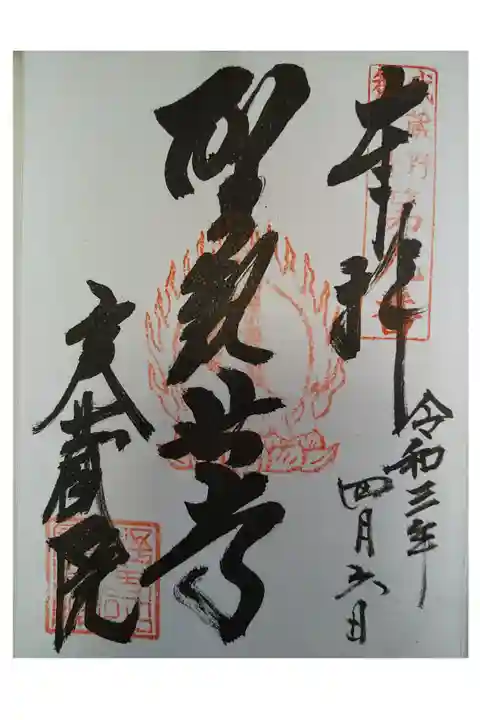 奉拝
令和三年
四月六日
聖観世音
実蔵院